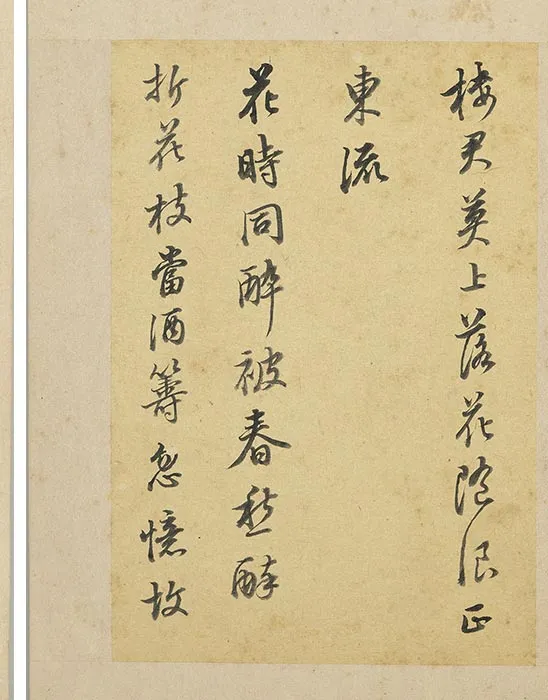 樓君莫上落花隨浪正
東流
花時同醉被春愁醉
折花枝當酒籌忽憶故